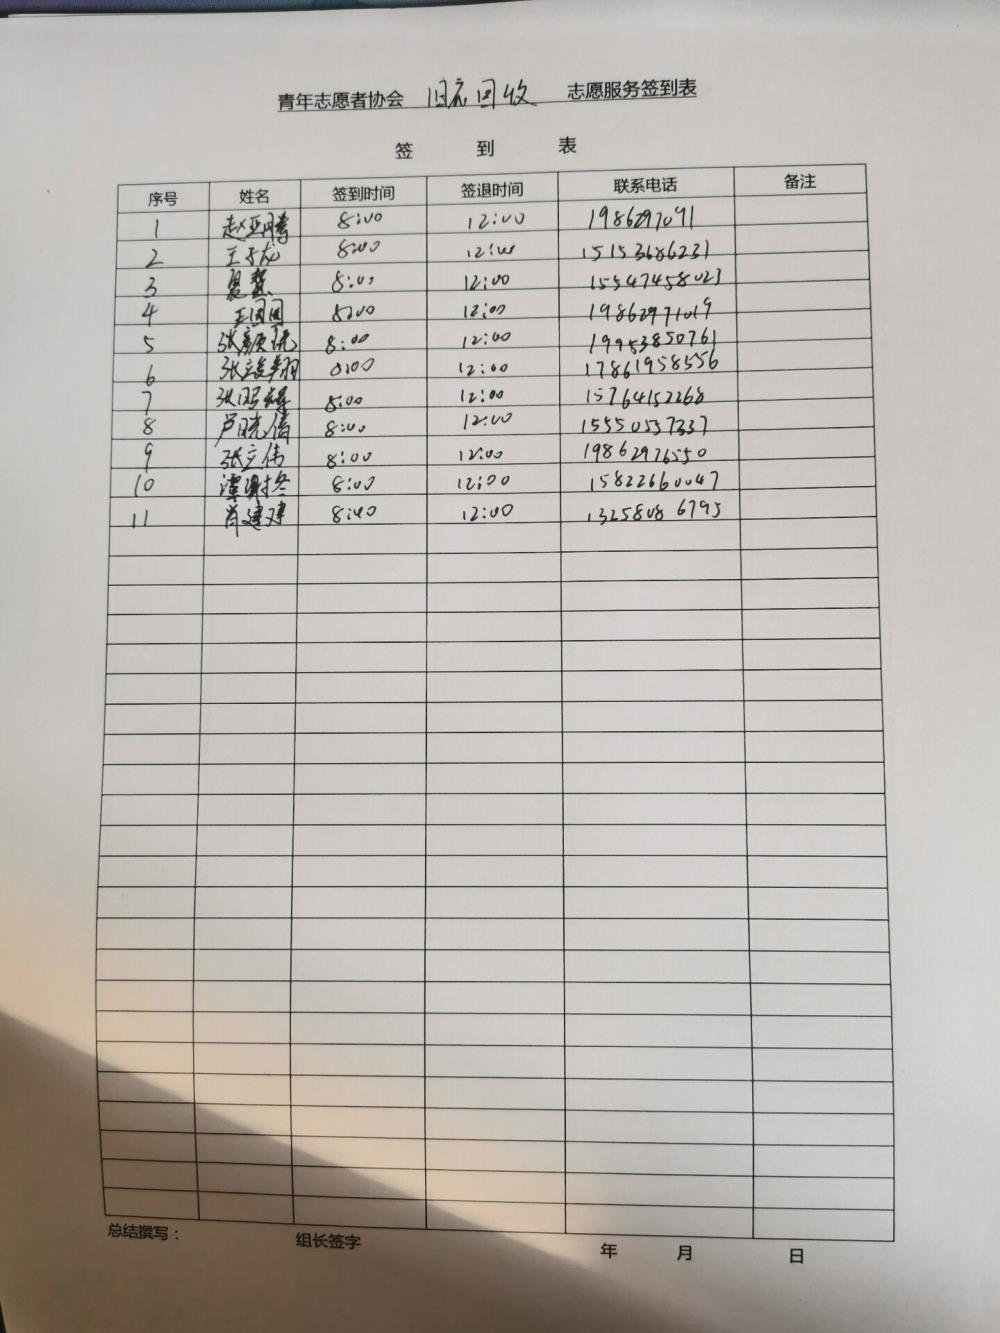 青年志愿者协会 旧衣回收 志愿服务签到表
签 到 表
序号 姓名 签到时间 签退时间 联系电话 备注
1 赵亚腾 8:00 12:00 1986297091
2 王子龙 8:00 12:00 15153686231
3 夏慧 8:00 12:00 15547458023
4 王团团 8:00 12:00 19862971019
5 张颜琉 8:00 12:00 19953850761
6 张竣翔 8:00 12:00 17861958556
7 张熙 8:00 12:00 15764152268
8 卢晓倩 8:00 12:00 15550557337
9 张立伟 8:00 12:00 19862976550
10 谭谢冬 8:00 12:00 15822660047
11 肖建建 8:00 12:00 13258086795
总结撰写： 组长签字 年 月 日